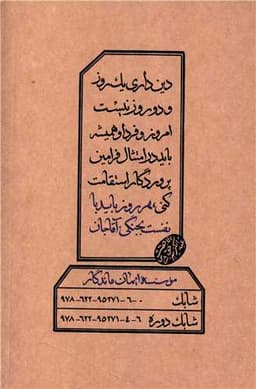 دین‌داری یك روز
و دو روز نیست
امروز و فردا و همیشه
باید در امتثال فرامین
پروردگار استقامت
کنی؛ هر روز باید با
نفست بجنگی؛ آقاجان
مؤسسه ایمان ماندگار
شابك ۹۷۸-۶۲۲-۹۵۲۷۱-۶-۰
شابك دوره ۹۷۸-۶۲۲-۹۵۲۷۱-۴-۶